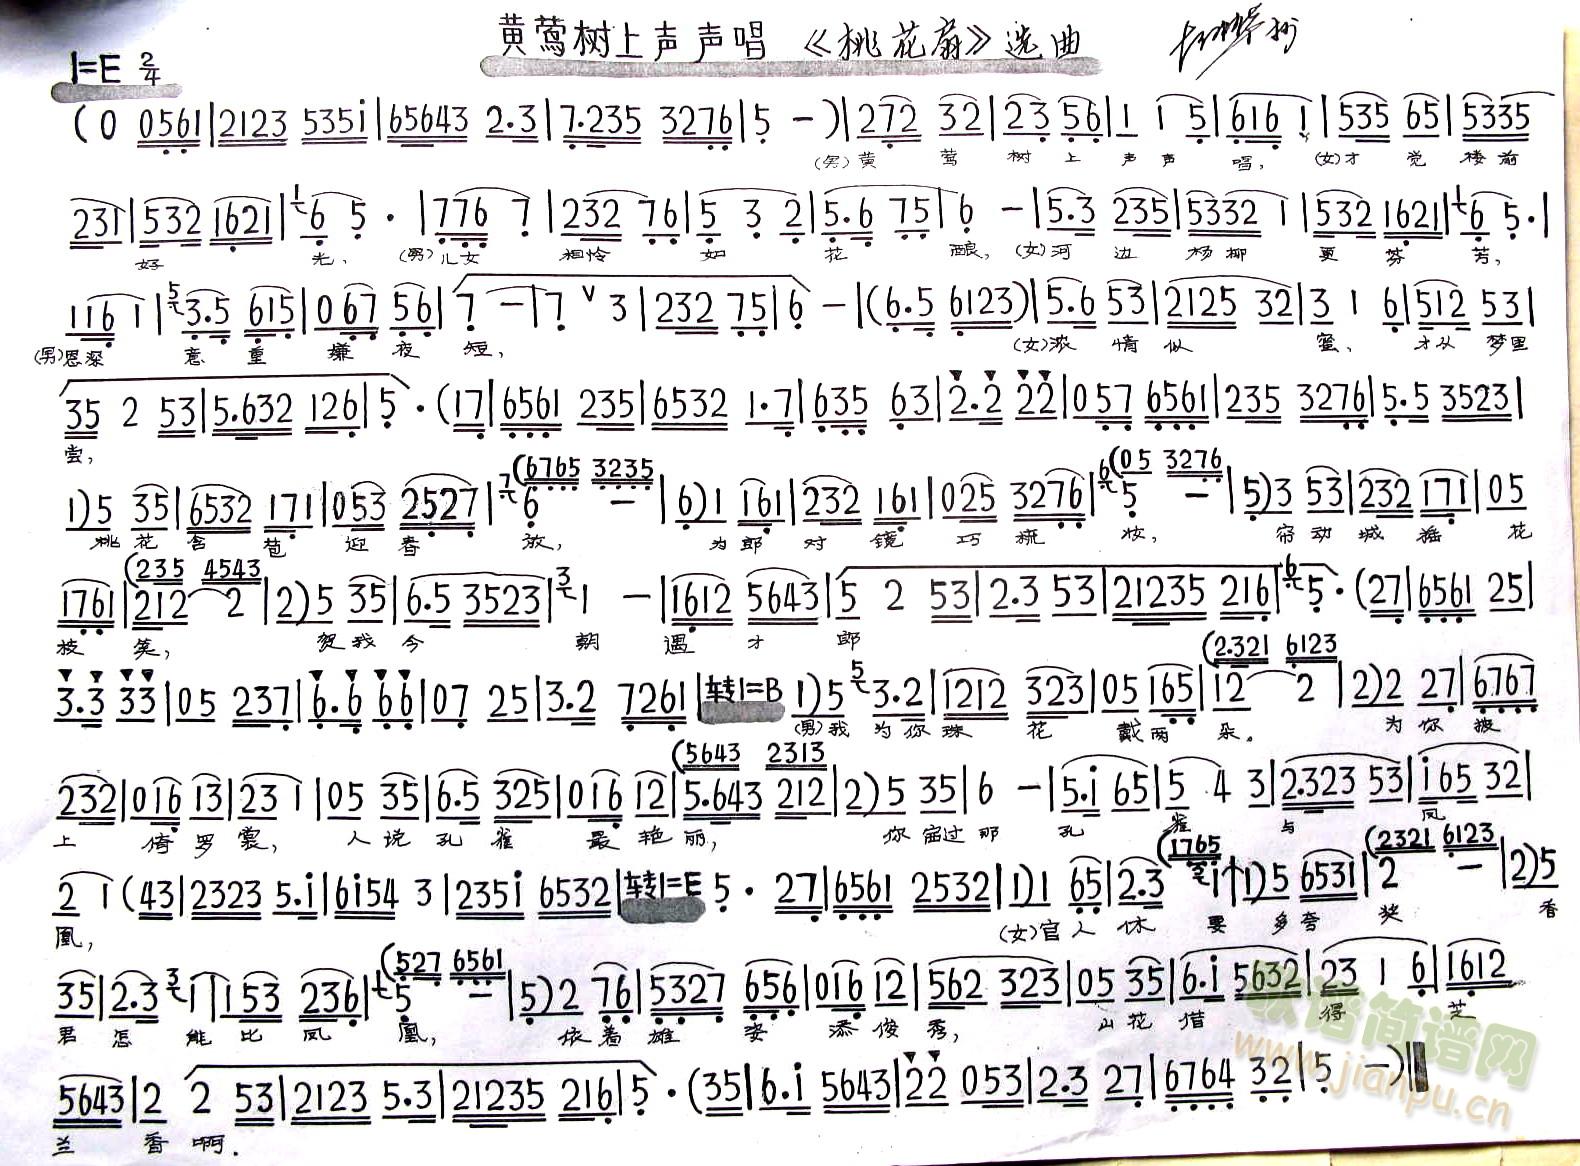 黄莺树上声声唱 《桃花扇》选曲
1=E 2/4
(0 0561|2123 535i|65643 2.3|7.235 3276|5 -)|272 32|23 56|1 1 5|616 1|535 65|5335
(男)黄 莺 树 上 声 声 唱, (女)才 觉 楼 前
231|532 1621|6 5 .|776 7|232 76|5 3 2|5.6 75|6 -|5.3 235|5332 1|532 1621|6 5.|
好 光, (男)儿女 相怜 如 花 酿, (女)河 边 杨柳 更 芬 芳,
116 1|3.5 615|067 56|7 -|7 ∨ 3|232 75|6 -|(6.5 6123)|5.6 53|2125 32|3 1 6|512 53|
(男)恩深 意 重 嫌 夜 短, (女)浓 情 似 蜜, 才从 梦里
35 2 53|5.632 126|5 . (17|6561 235|6532 1.7|635 63|2.2 22|057 6561|235 3276|5.5 3523|
尝,
(6765 3235 (05 3276
1)5 35|6532 171|053 2527|6 -|6)1 161|232 161|025 3276|5 -|5)3 53|232 171|05
桃 花 含 苞 迎 春 放, 为 郎 对 镜 巧 梳 妆, 帘 动 城 摇 花
(235 4543
1761|212 2|2)5 35|6.5 3523|1 -|1612 5643|5 2 53|2.3 53|21235 216|5 . (27|6561 25|
枝 笑, 贺 我 今 朝 遇 才 郎
(2.321 6123
3.3 33|05 237|6.6 66|07 25|3.2 7261|转1=B 1)5 3.2|1212 323|05 165|12 2|2)2 27|6767
(男)我 为你 珠 花 戴 两 朵。 为 你 披
(5643 2313
232|016 13|23 1|05 35|6.5 325|016 12|5.643 212|2)5 35|6 -|5.i 65|5 4 3|2.323 53|i65 32|
上 倚 罗 裳, 人 说 孔 雀 最 艳 丽, 你 届过 那 孔 雀 与 凤
(1765 (2321 6123
2 1 (43|2323 5.i|6i54 3|235i 6532|转1=E 5 . 27|6561 2532|1)1 65|2.3 i|1)5 6531|2 -|2)5
凰, (女)官 人 休 要 多 夸 奖 香
(527 6561
35|2.3 1|153 236|5 -|5)2 76|5327 656|016 12|562 323|05 35|6.i 5632|23 1 6|1612
君 怎 能 比 凤 凰, 依 着 雄 姿 添 俊 秀, 山 花 借 得 芝
5643|2 2 53|2123 5.3|21235 216|5 . (35|6.i 5643|22 053|2.3 27|6764 32|5 -)‖
兰 香 啊.
歌谱简谱网
www.jianpu.cn